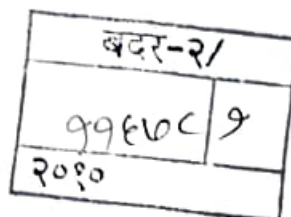 बदर-२/
११६७८ १
२०१०